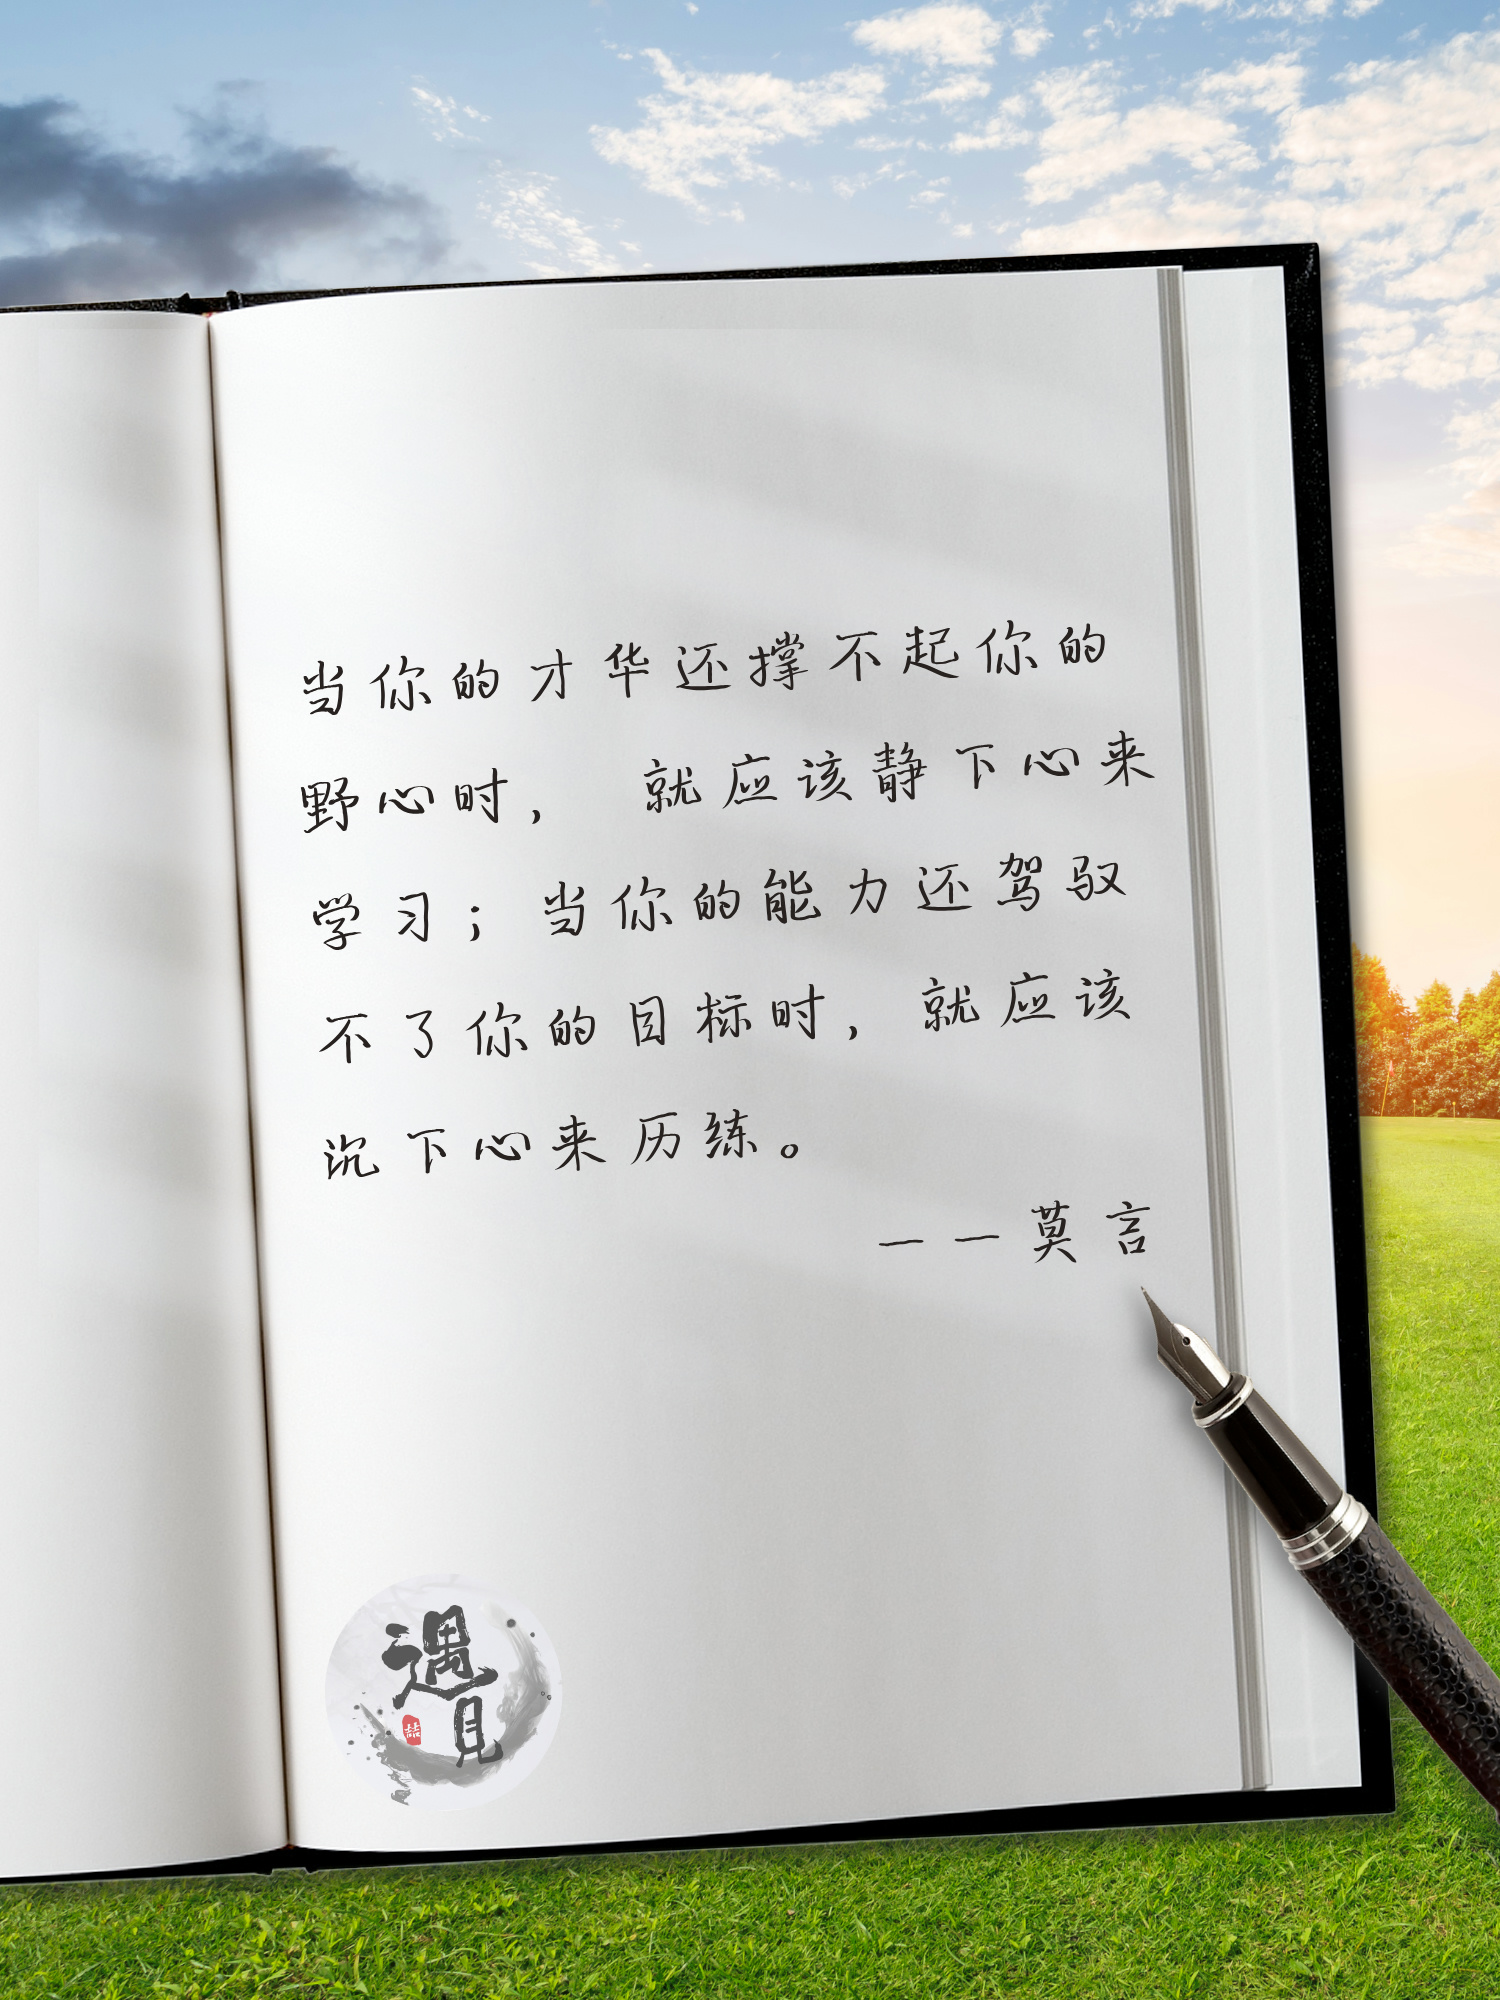 当你的才华还撑不起你的
野心时， 就应该静下心来
学习；当你的能力还驾驭
不了你的目标时，就应该
沉下心来历练。
——莫言
遇
见
喆